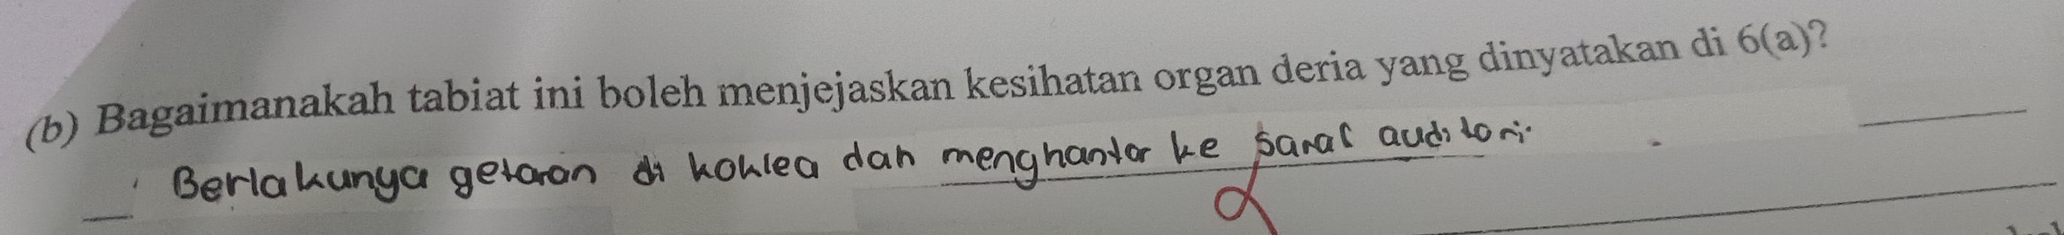 (b) Bagaimanakah tabiat ini boleh menjejaskan kesihatan organ deria yang dinyatakan di 6(a)?
Berlakunya getaran di koklea dan menghantar ke saraf auditori.